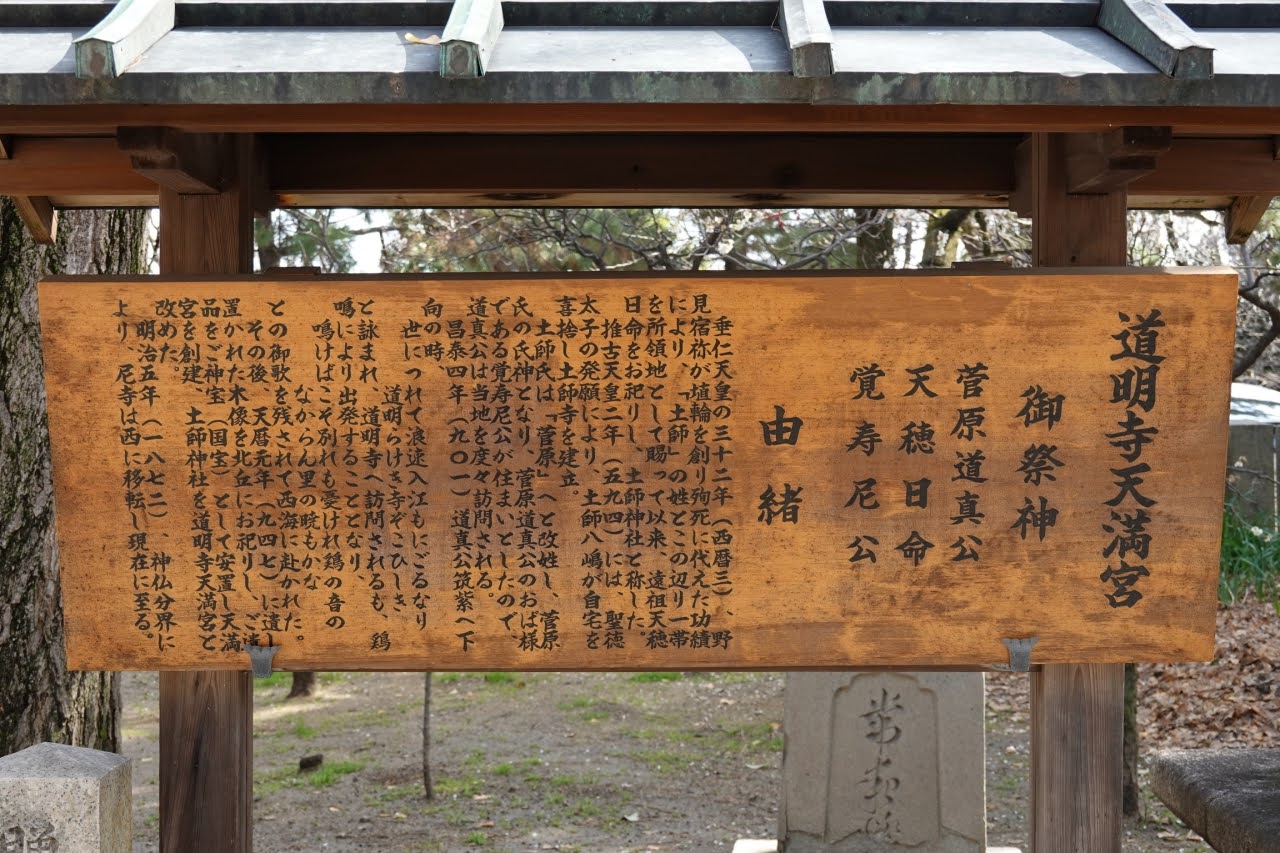 道明寺天満宮
御祭神
菅原道真公
天穂日命
覚寿尼公
由緒
垂仁天皇の三十二年（西暦三）、野
見宿祢が埴輪を創り殉死に代えた功績
により、「土師」の姓とこの辺り一帯
を所領地として賜って以来、遠祖天穂
日命をお祀りし、土師神社と称した。
推古天皇二年（五九四）には、聖徳
太子の発願により、土師八嶋が自宅を
喜捨し土師寺を建立。
土師氏は「菅原」へと改姓し、菅原
氏の氏神となり、菅原道真公のおば様
である覚寿尼公が住まいとしたので、
道真公は当地を度々訪問される。
昌泰四年（九〇一）道真公筑紫へ下
向の時、
世につれて浪速入江もにごるなり
道明らけき寺ぞこひしき、
と詠まれ、道明寺へ訪問されるも、鶏
鳴により出発することとなり、
鳴けばこそ別れも憂けれ鶏の音の
なからん里の暁もかな
との御歌を残されて西海に赴かれた。
その後、天暦元年（九四七）に遺し
置かれた木像を北丘にお祀りし、ご遺
品をご神宝（国宝）として安置し天満
宮を創建、土師神社を道明寺天満宮と
改めた。
明治五年（一八七二）、神仏分界に
より、尼寺は西に移転し現在に至る。